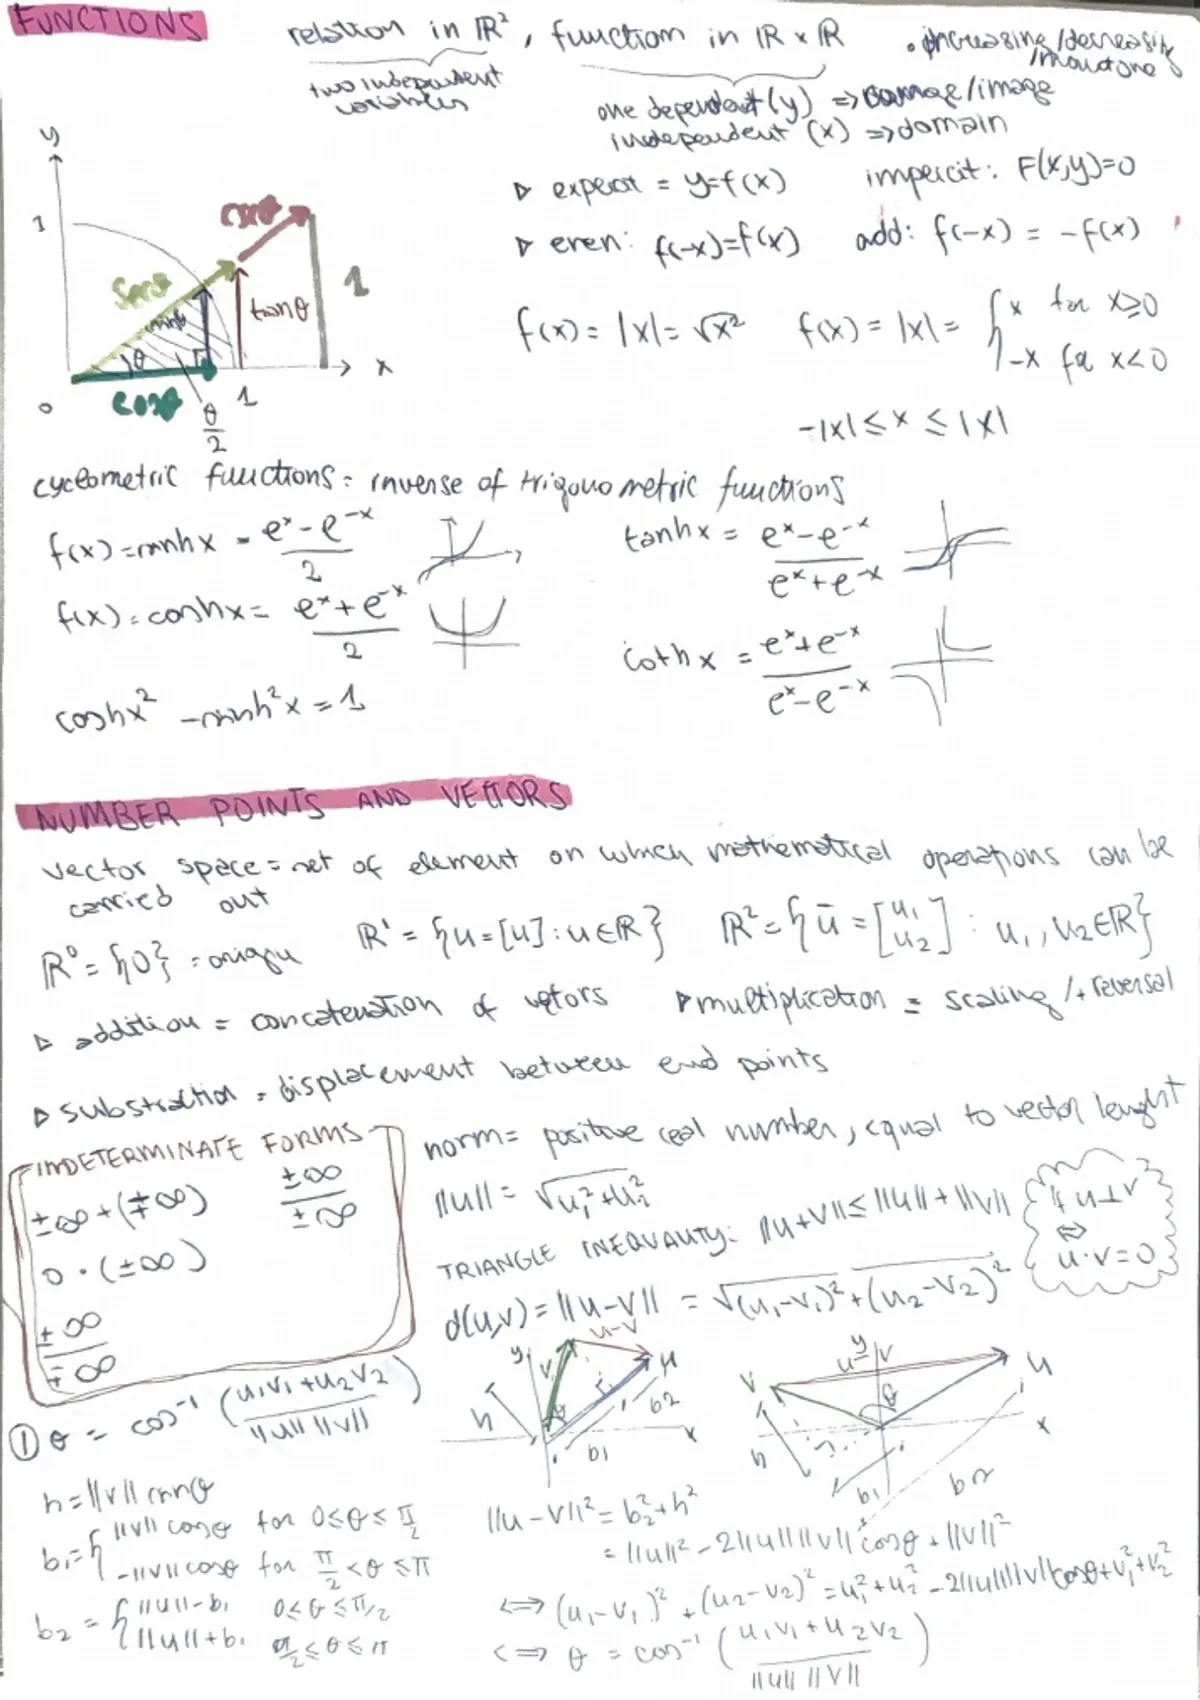 FUNCTIONS
relation in ℝ², function in ℝ × ℝ
• increasing/decreasing
/monotone
two independent
variables
one dependent (y) => /image
independent (x) => domain
▷ = y=f(x) implicit: F(x,y)=0
▷ even: f(-x)=f(x) odd: f(-x) = -f(x)
f(x) = |x| = √x² f(x) = |x| = { x for x≥0
-x for x<0
-|x| ≤ x ≤ |x|
y
1
cscθ
secθ
sinθ
tanθ
1
θ
x
0
cosθ
θ/2
1
cyclometric functions = inverse of trigonometric functions
f(x) = sinh x = (eˣ - e⁻ˣ)/2
tanh x = (eˣ - e⁻ˣ)/(eˣ + e⁻ˣ)
f(x) = cosh x = (eˣ + e⁻ˣ)/2
coth x = (eˣ + e⁻ˣ)/(eˣ - e⁻ˣ)
coshx² - sinh²x = 1
NUMBER POINTS AND VECTORS
vector space = set of element on which mathematical operations can be
carried out
ℝ⁰ = {0} = ℝ¹ = {u = [u] : u ∈ ℝ} ℝ² = {ū = [u₁ u₂] : u₁, u₂ ∈ ℝ}
▷ addition = concatenation of vectors ▷ multiplication = scaling /+ reversal
▷ substraction = displacement between end points
INDETERMINATE FORMS
±∞ + (∓∞) ±∞/±∞
0 · (±∞)
±∞/∓∞
norm = positive real number, equal to vector lenght
||u|| = √u₁² + u₂²
TRIANGLE INEQUALITY: ||u+v|| ≤ ||u|| + ||v||
if u⊥v
⇔
u·v = 0
d(u,v) = ||u-v|| = √(u₁-v₁)² + (u₂-v₂)²
① θ = cos⁻¹ ((u₁v₁ + u₂v₂)/(||u|| ||v||))
y
v
u-v
u
h
θ
b₂
b₁
x
y
u-v
v
u
θ
x
h
b₁
b₂
h = ||v|| sinθ
b₁ = { ||v|| cosθ for 0≤θ≤π/2
-||v|| cosθ for π/2<θ≤π
b₂ = { ||u|| - b₁ 0≤θ≤π/2
||u|| + b₁ π/2≤θ≤π
||u-v||² = b₂² + h²
= ||u||² - 2||u|| ||v|| cosθ + ||v||²
<=> (u₁-v₁)² + (u₂-v₂)² = u₁² + u₂² - 2||u|| ||v|| cosθ + v₁² + v₂²
<=> θ = cos⁻¹ ((u₁v₁ + u₂v₂)/(||u|| ||v||))